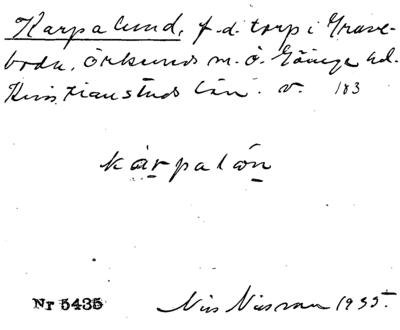 Karpalund, f.d. torp i Grave-
boda, Örkeneds m. ö. Göinge hd.
Kristianstads län. v. 183
kárpalön
Nr 5435 Nils Nilsson 1935.